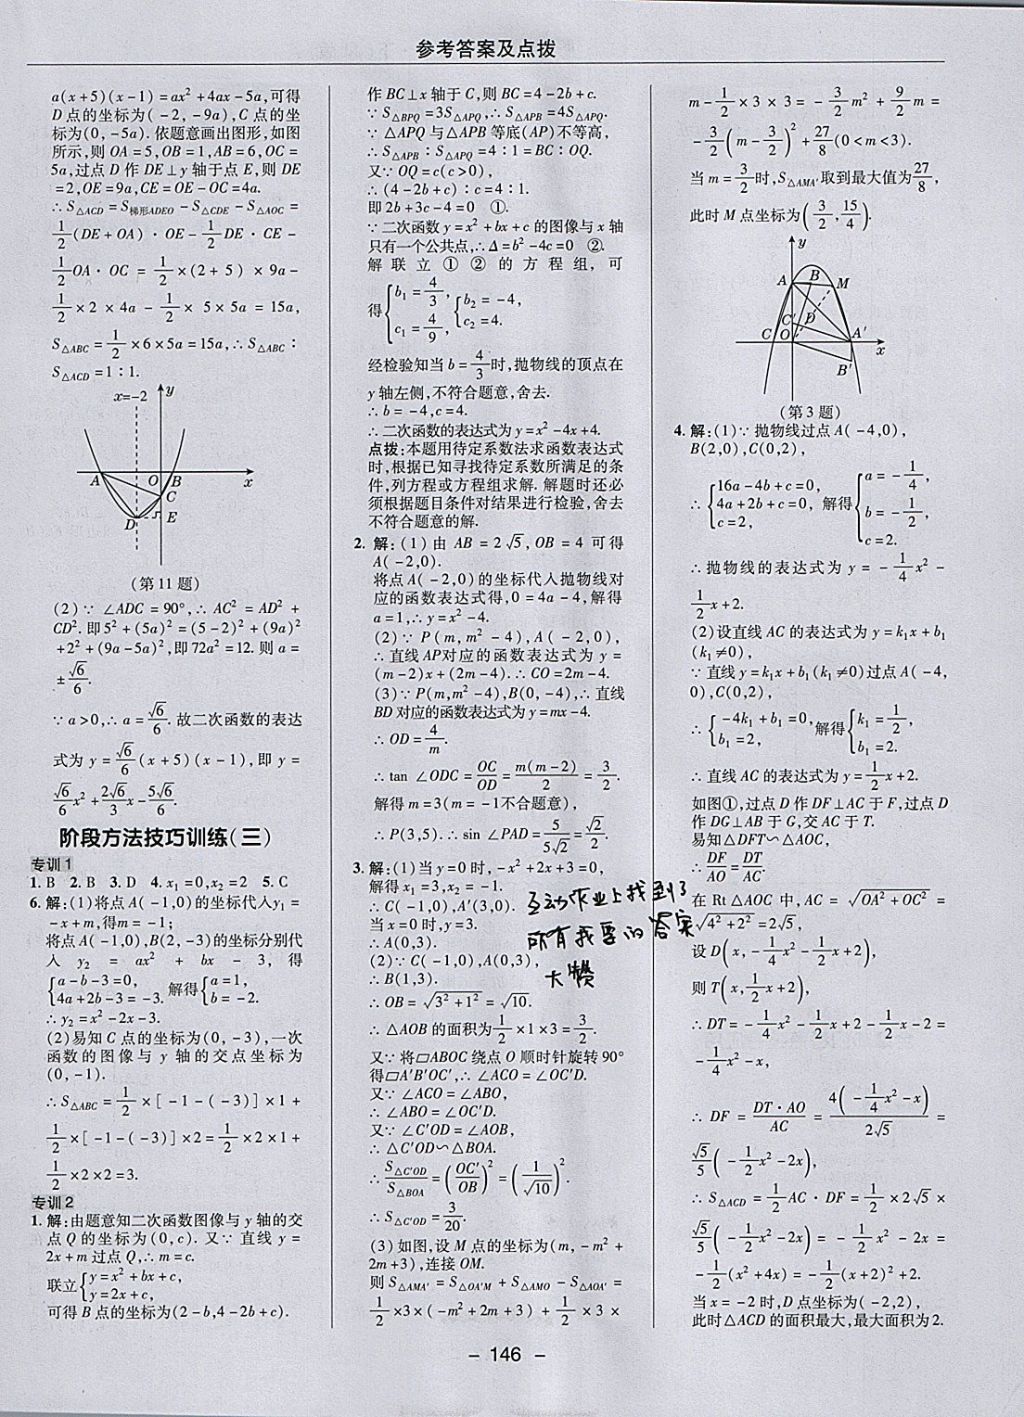 参考答案及点拨
a(x+5)(x-1)=ax²+4ax-5a,可得
D点的坐标为(-2,-9a),C点的坐
标为(0,-5a).依题意画出图形,如图
所示,则OA=5,OB=1,AB=6,OC=
5a,过点D作DE⊥y轴于点E,则DE
=2,OE=9a,CE=OE-OC=4a.
∴S△ACD=S梯形ADEO-S△CDE-S△AOC=
1/2(DE+OA)·OE-1/2DE·CE-
1/2OA·OC=1/2×(2+5)×9a-
1/2×2×4a-1/2×5×5a=15a,
S△ABC=1/2×6×5a=15a,∴S△ABC:
S△ACD=1:1.
x=-2 y
A O B x
C
D E
(第11题)
(2)∵∠ADC=90°,∴AC²=AD²+
CD².即5²+(5a)²=(5-2)²+(9a)²
+2²+(9a-5a)²,即72a²=12.则a=
±√6/6.
∵a>0,∴a=√6/6.故二次函数的表达
式为y=√6/6(x+5)(x-1),即y=
√6/6x²+2√6/3x-5√6/6.
阶段方法技巧训练(三)
专训1
1.B 2.B 3.D 4.x₁=0,x₂=2 5.C
6.解:(1)将点A(-1,0)的坐标代入y₁=
-x+m,得m=-1;
将点A(-1,0),B(2,-3)的坐标分别代
入 y₂ = ax² + bx - 3,得
{a-b-3=0, 4a+2b-3=-3. 解得{a=1, b=-2.
∴y₂=x²-2x-3.
(2)易知C点的坐标为(0,-3),一次
函数的图像与y轴的交点坐标为
(0,-1).
∴S△ABC=1/2×[-1-(-3)]×1+
1/2×[-1-(-3)]×2=1/2×2×1+
1/2×2×2=3.
专训2
1.解:由题意知二次函数图像与y轴的交
点Q的坐标为(0,c).又∵直线y=
2x+m过点Q,∴m=c.
联立{y=x²+bx+c, y=2x+c,
可得B点的坐标为(2-b,4-2b+c).
作BC⊥x轴于C,则BC=4-2b+c.
∵S△BPQ=3S△APQ,∴S△APB=4S△APQ.
∵△APQ与△APB等底(AP)不等高,
∴S△APB:S△APQ=4:1=BC:OQ.
又∵OQ=c(c>0),
∴(4-2b+c):c=4:1.
即2b+3c-4=0 ①.
∵二次函数y=x²+bx+c的图像与x轴
只有一个公共点,∴Δ=b²-4c=0 ②.
解联立①②的方程组,可
得{b₁=4/3, c₁=4/9, {b₂=-4, c₂=4.
经检验知当b=4/3时,抛物线的顶点在
y轴左侧,不符合题意,舍去.
∴b=-4,c=4.
∴二次函数的表达式为y=x²-4x+4.
点拨:本题用待定系数法求函数表达式
时,根据已知寻找待定系数所满足的条
件,列方程或方程组求解.解题时还必
须根据题目条件对结果进行检验,舍去
不符合题意的解.
2.解:(1)由AB=2√5,OB=4可得
A(-2,0).
将点A(-2,0)的坐标代入抛物线对
应的函数表达式得,0=4a-4,解得
a=1,∴y=x²-4.
(2)∵P(m,m²-4),A(-2,0),
∴直线AP对应的函数表达式为y=
(m-2)x+(2m-4).∴CO=2m-4.
(3)∵P(m,m²-4),B(0,-4),∴直线
BD对应的函数表达式为y=mx-4.
∴OD=4/m.
∴tan∠ODC=OC/OD=m(m-2)/2=3/2.
解得m=3(m=-1不合题意),
∴P(3,5).∴sin∠PAD=5/5√2=√2/2.
3.解:(1)当y=0时,-x²+2x+3=0,
解得x₁=3,x₂=-1.
∴C(-1,0),A'(3,0).
当x=0时,y=3.
∴A(0,3).
(2)∵C(-1,0),A(0,3),
∴B(1,3).
∴OB=√3²+1²=√10.
∴△AOB的面积为1/2×1×3=3/2.
又∵将▱ABOC绕点O顺时针旋转90°
得▱A'B'OC',∴∠ACO=∠OC'D.
又∵∠ACO=∠ABO,
∴∠ABO=∠OC'D.
又∵∠C'OD=∠AOB,
∴△C'OD∽△BOA.
∴S△C'OD/S△BOA=(OC'/OB)²=(1/√10)².
∴S△C'OD=3/20.
(3)如图,设M点的坐标为(m,-m²+
2m+3),连接OM.
则S△AMA'=S△OA'M+S△AMO-S△AOA'=
1/2×3×(-m²+2m+3)+1/2×3×
互动作业上找到了
所有我要的答案
大赞
m-1/2×3×3=-3/2m²+9/2m=
-3/2(m-3/2)²+27/8(0<m<3).
当m=3/2时,S△AMA'取到最大值为27/8,
此时M点坐标为(3/2,15/4).
y
A B M
C' D
C O A' x
B'
(第3题)
4.解:(1)∵抛物线过点A(-4,0),
B(2,0),C(0,2),
∴{16a-4b+c=0, 4a+2b+c=0, c=2, 解得{a=-1/4, b=-1/2, c=2.
∴抛物线的表达式为y=-1/4x²-
1/2x+2.
(2)设直线AC的表达式为y=k₁x+b₁
(k₁≠0),
∵直线y=k₁x+b₁(k₁≠0)过点A(-4,
0),C(0,2),
∴{-4k₁+b₁=0, b₁=2, 解得{k₁=1/2, b₁=2.
∴直线AC的表达式为y=1/2x+2.
如图①,过点D作DF⊥AC于F,过点D
作DG⊥AB于G,交AC于T.
易知△DFT∽△AOC,
∴DF/AO=DT/AC.
在Rt△AOC中,AC=√OA²+OC²=
√4²+2²=2√5,
设D(x,-1/4x²-1/2x+2),
则T(x,1/2x+2),
∴DT=-1/4x²-1/2x+2-1/2x-2=
-1/4x²-x,
∴DF=DT·AO/AC=4(-1/4x²-x)/2√5=
√5/5(-1/2x²-2x),
∴S△ACD=1/2AC·DF=1/2×2√5×
√5/5(-1/2x²-2x)=-1/2x²-2x=
-1/2(x²+4x)=-1/2(x+2)²+2.
当x=-2时,D点坐标为(-2,2),
此时△ACD的面积最大,最大面积为2.
- 146 -